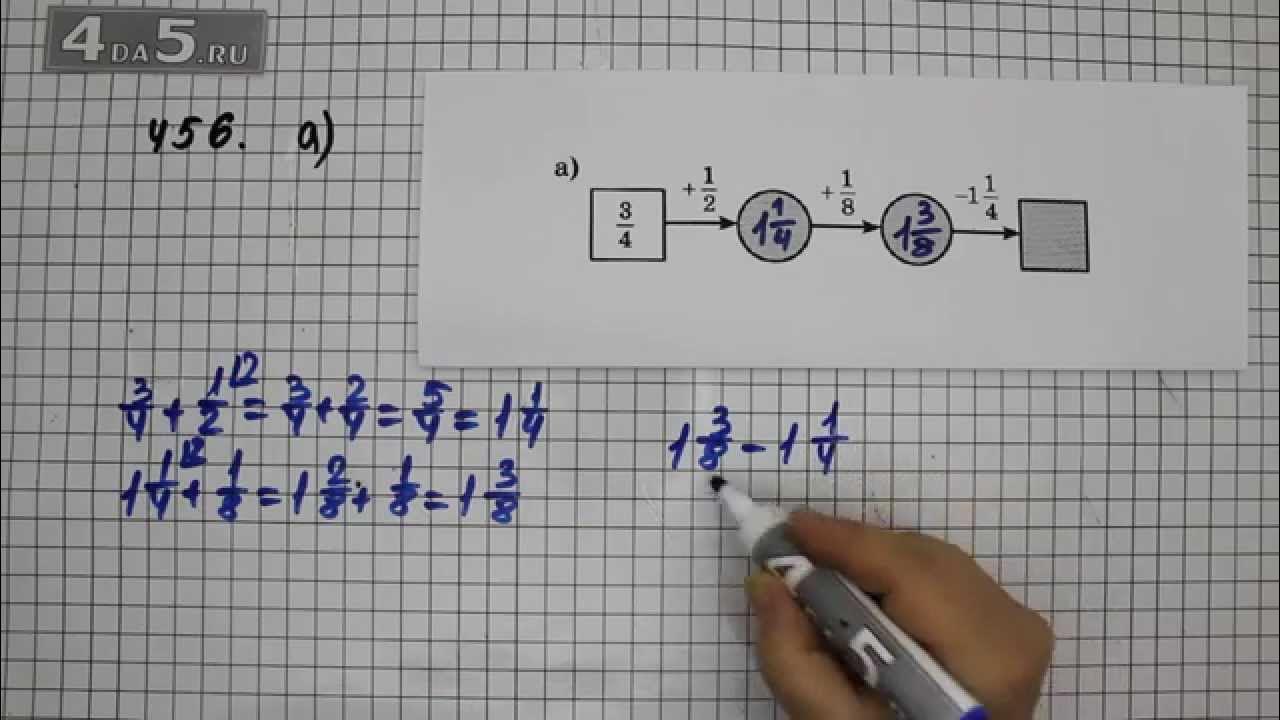 4DA5.RU
456. а)
а) 3/4 +1/2 1 1/4 +1/8 1 3/8 -1 1/4
3/4 + 1/2 |2 = 3/4 + 2/4 = 5/4 = 1 1/4
1 1/4 |2 + 1/8 = 1 2/8 + 1/8 = 1 3/8
1 3/8 - 1 1/4